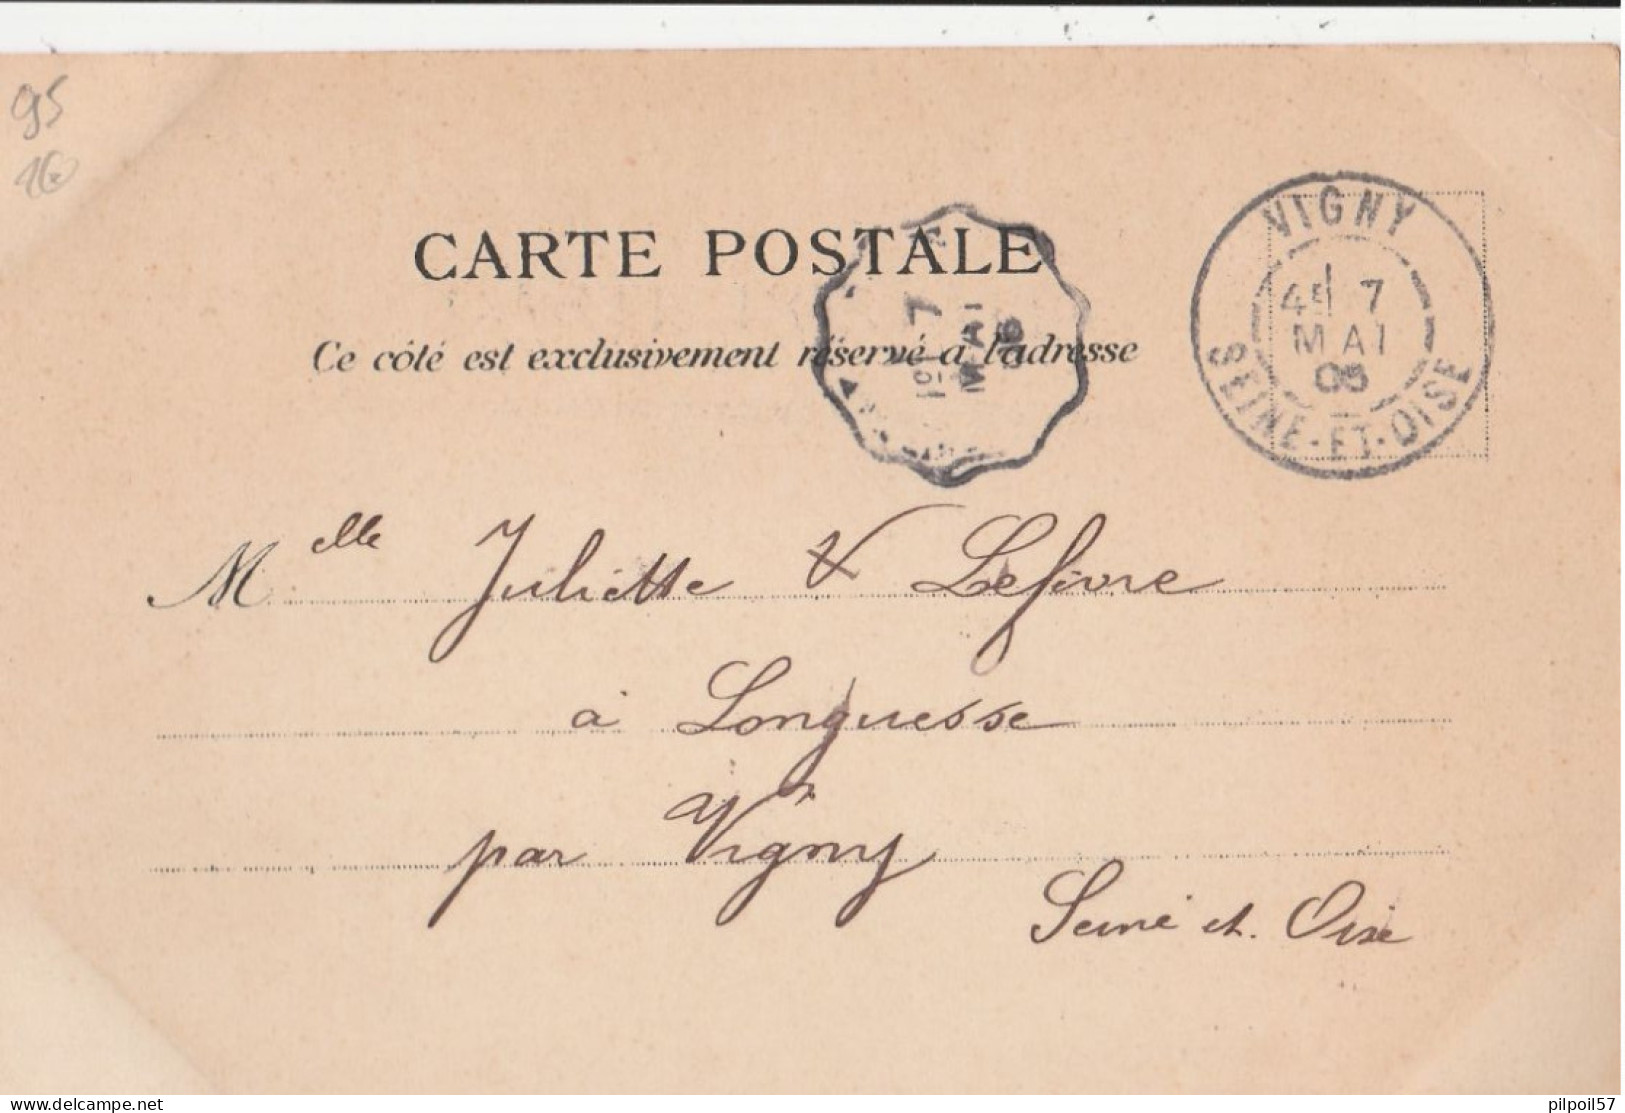 95
CARTE POSTALE
Ce côté est exclusivement réservé à l'adresse
1E 7
MAI
VIGNY
4E 7
MAI
05
SEINE-ET-OISE
Melle Juliette Lefèvre
à Longuesse
par Vigny
Seine et. Oise
delcampe.net
pilpoil57